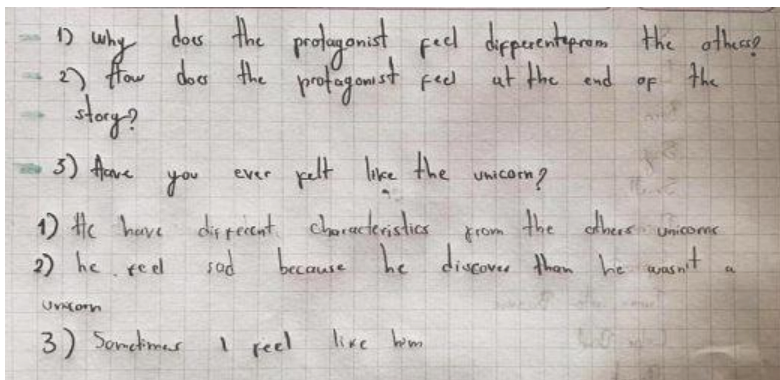 1) Why does the protagonist feel differentefrom the others?
2) How does the protagonist feel at the end of the
story?
3) Have you ever felt like the unicorn?
1) He have different characteristics from the others unicorns
2) he feel sad because he discover than he wasn't a
unicorn
3) Sometimes I feel like him